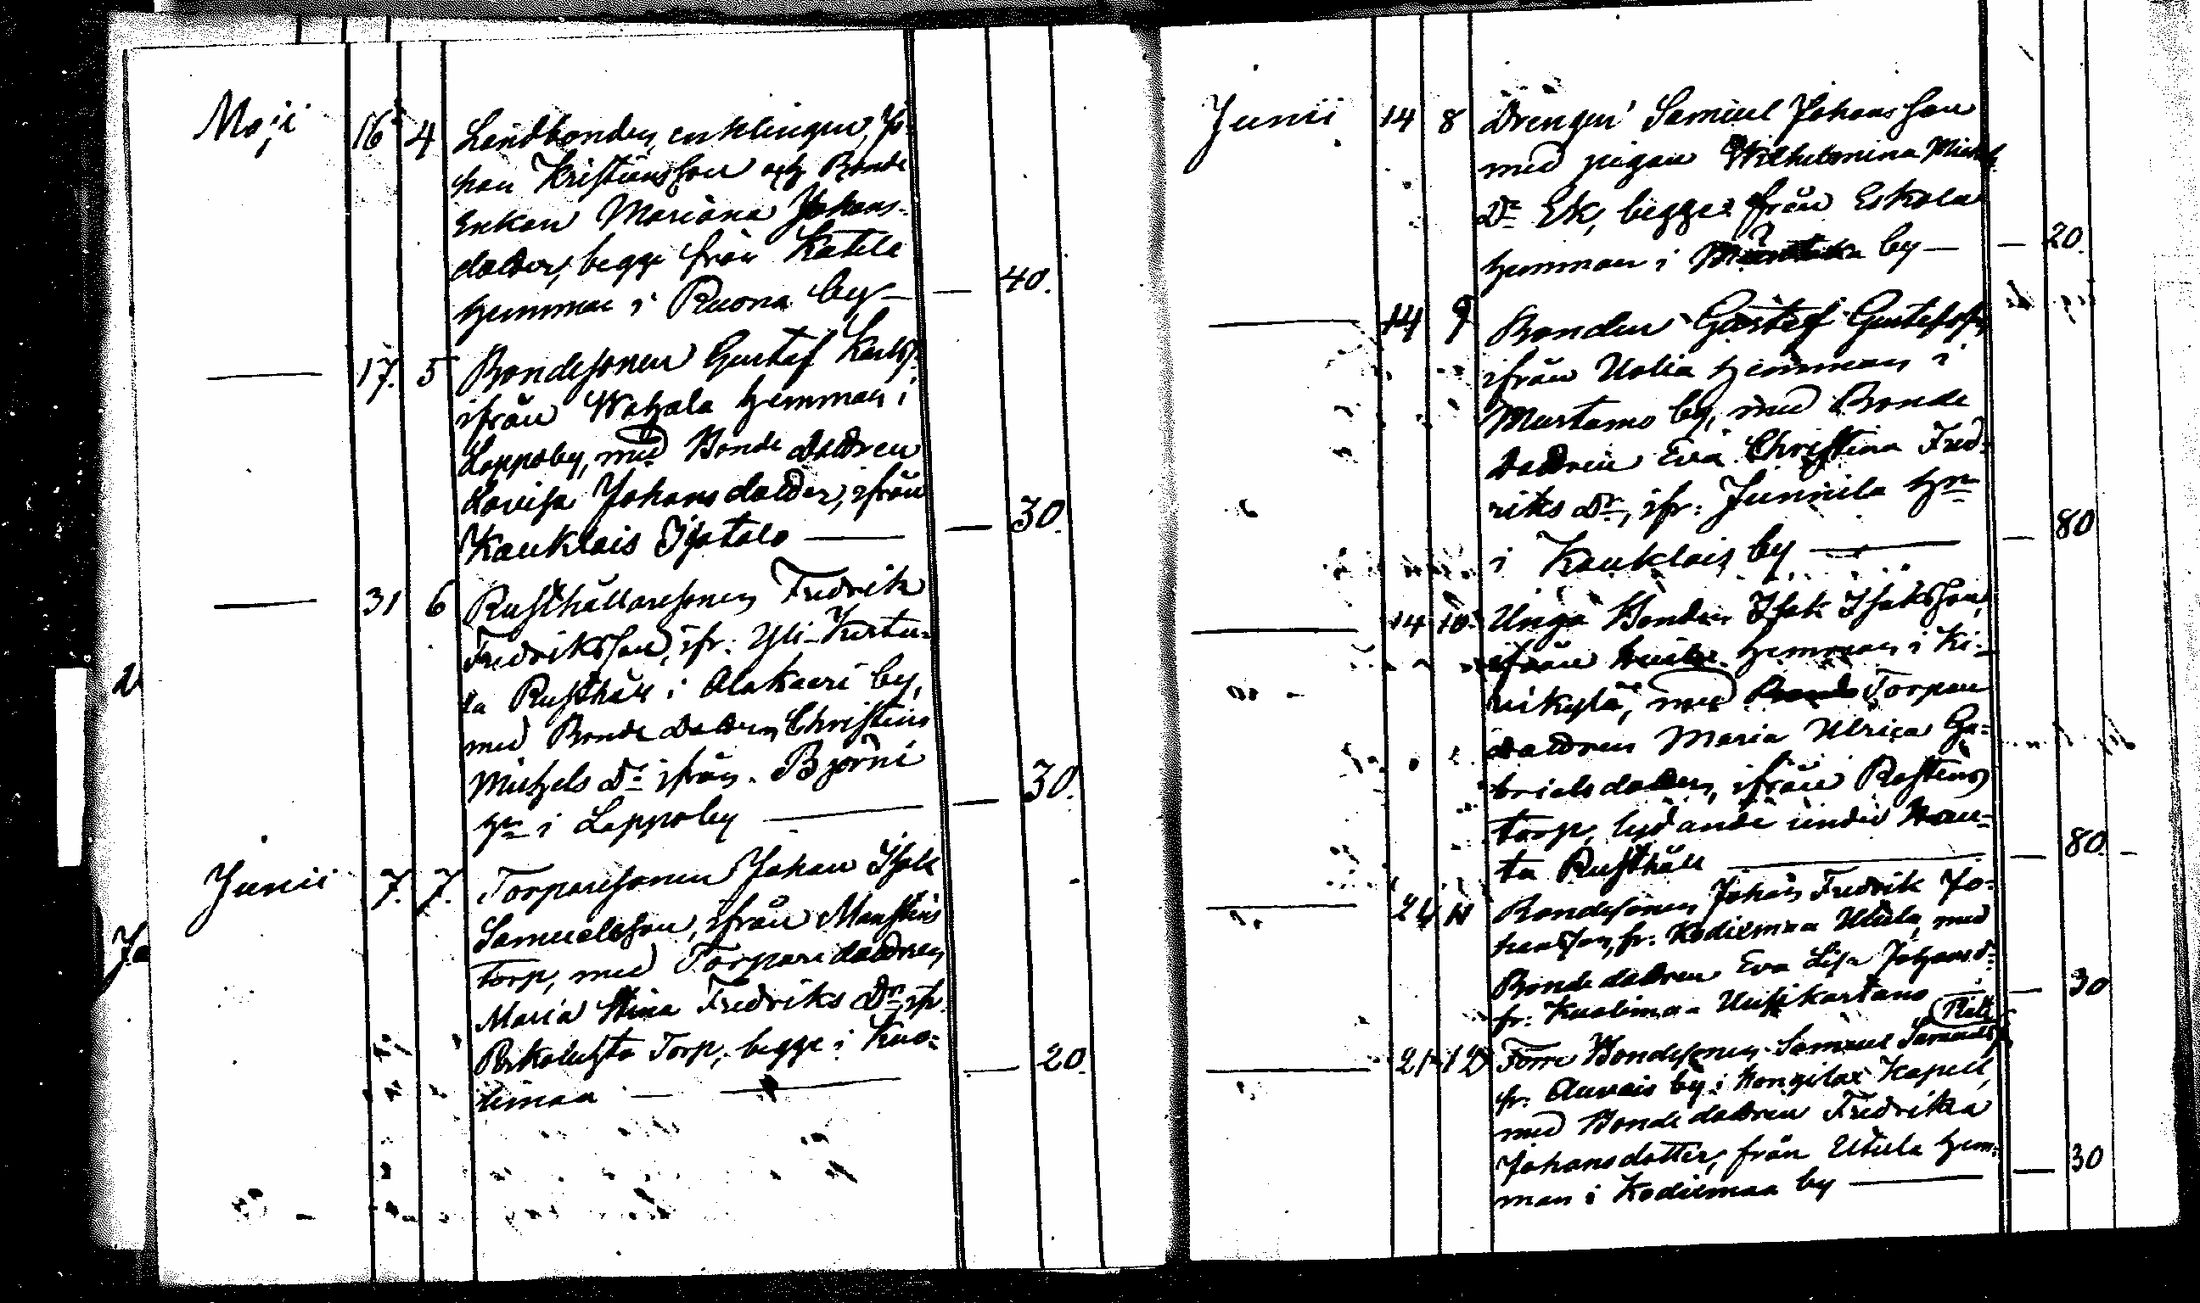 Maji 16 4 Landbonden, enklingen, Jo-
han Kristiansson och Bonde
Enkan Mariana Johans-
dotter, begge från Katela
hemman i Ruona by — — 40.
— 17. 5 Bondesonen Gustaf Karlss.
ifrån Wahala hemman i
Lappoby, med Bonde dottren
Lovisa Johansdotter, ifrån
Kauklais Isotalo — — 30.
— 31 6 Rusthållaresonen Fredrik
Fredriksson, ifr: Yli-Kertu-
la Rusthåll i Alakaeri by,
med Bonde dottren Christina
Michels Dr ifrån Björni
hn i Lappoby — — 30.
Junii 7. 7. Torparesonen Johan Isak
Samuelsson, ifrån Manstens
Torp, med Torparedottren
Maria Stina Fredriks Dr, ifr.
Perkaluhta Torp, begge i Kuo-
limaa — — — 20.
Junii 14 8 Drengen Samuel Johansson
med pigan Wilhelmina Michels
Dr Ek, begge från Eskola
hemman i by — — 20.
— 14 9 Bonden Gustaf Gustafsson
ifrån Uotia hemman i
Murtamo by, med Bonde
dottren Eva Christina Fred-
riks Dr, ifr: Junnila hn
i Kauklais by — — 80
— 14 10. Unga Bonden Isak Isaksson,
ifrån hemman i Ki-
rikylä, med Torpare
dottren Maria Ulrica Ga-
brielsdotter, ifrån Rostens
torp, lydande under Kau-
ta Rusthåll — — 80. —
— 21 11 Bondesonen Johan Fredrik Jo-
hansson, fr: Kodiemaa Utula, med
Bondedottren Eva Lisa Johansd:
fr: Kuolimaa Uusikartano — 30
— 21 12 Förre Bondesonen Samuel Samuelss.
fr: Auvais by i Kongilax Kapell,
med Bondedottren Fredrika
Johansdotter, från Utula hem-
man i Kodiemaa by — — 30